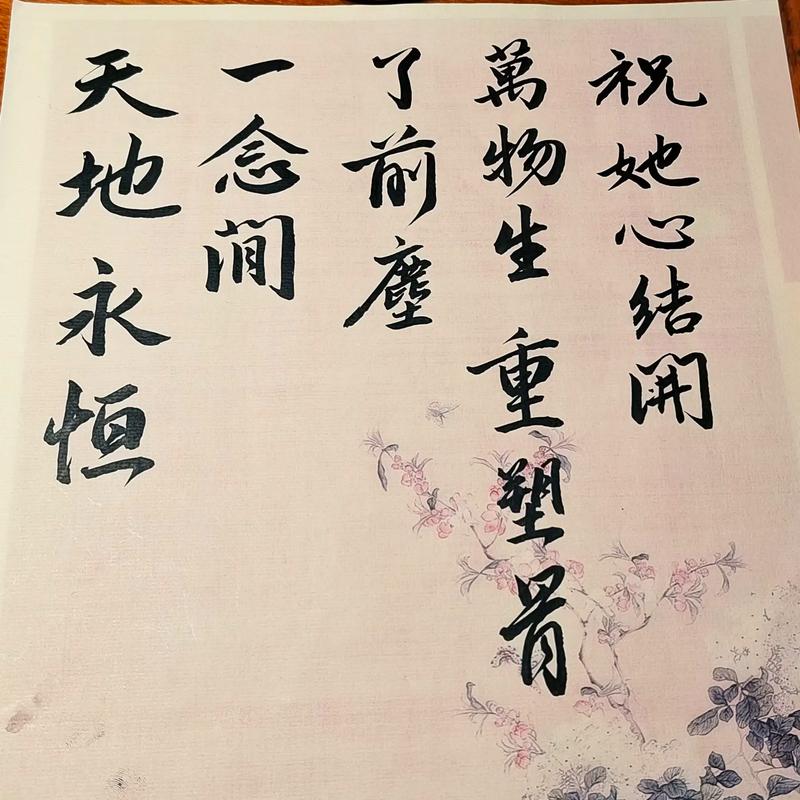 祝她心結開
萬物生重塑骨
了前塵
一念間
天地永恒